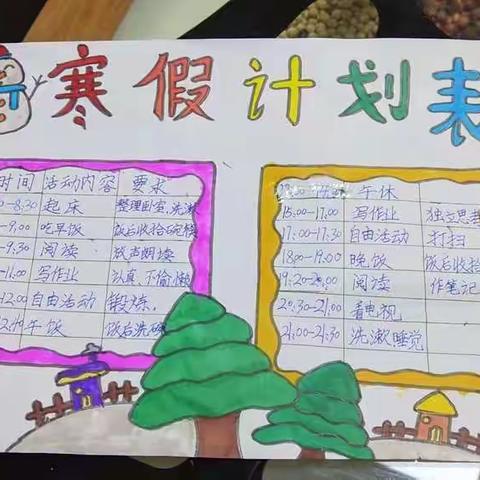 寒假计划表
时间 活动内容 要求
-8:30 起床 整理卧室,洗漱
-9:00 吃早饭 饭后收拾碗筷
-9:30 阅读 放声朗读
-11:00 写作业 认真、不偷懒
12:00 自由活动 锻炼,
午饭 饭后洗碗
午休
15:00-17:00 写作业 独立思考
17:00-17:30 自由活动 打扫
18:00-19:00 晚饭 饭后收拾
19:20-20:00 阅读 作笔记
20:30-21:00 看电视
21:00-21:30 洗漱,睡觉